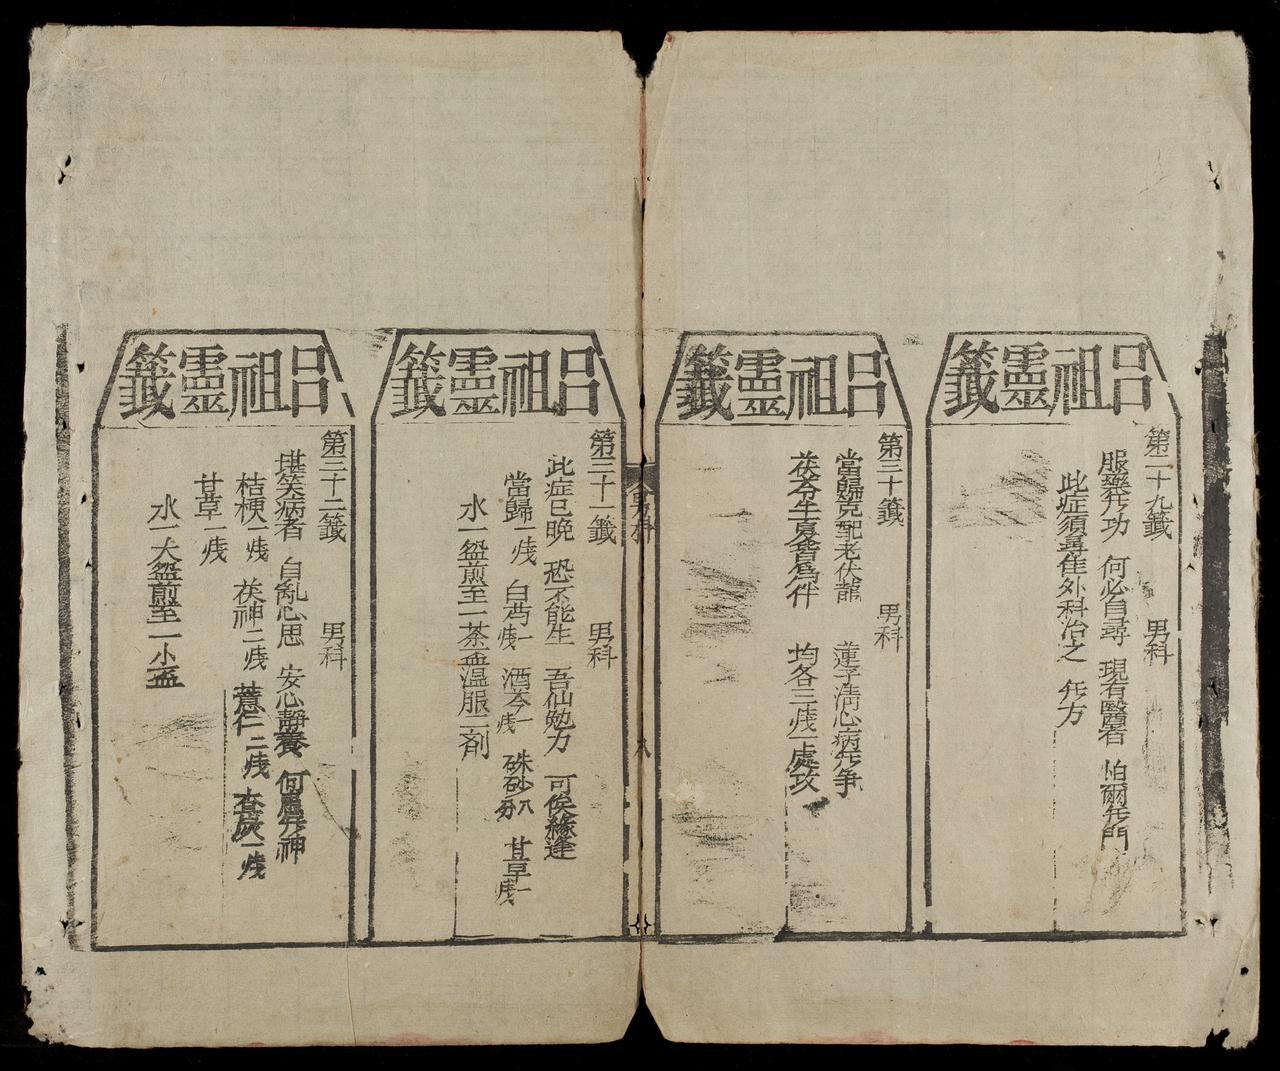 呂祖靈籤
第二十九籤 男科
服藥无功 何必自尋 現有醫者 怕爾无門
此症須尋隹外科治之 无方
呂祖靈籤
第三十籤 男科
當歸配老伏龍 蓮子清心病无爭
茯苓生夏皆為伴 均各三戔一處攻
男科
八
呂祖靈籤
第三十一籤 男科
此症已晚 恐不能生 吾仙勉力 可俟緣逢
當歸一戔 白芍一戔 酒芩一戔 硃砂八分 甘草一戔
水一盌煎至二茶盃温服二剤
呂祖靈籤
第三十二籤 男科
堪笑病者 自亂心思 安心靜養 何愚无神
桔梗一戔 茯神二戔 薏仁二戔 一戔
甘草一戔
水一大盌煎至一小盃